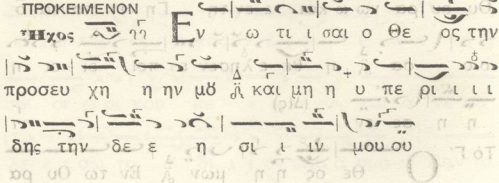 ΠΡΟΚΕΙΜΕΝΟΝ
Ἦχος Εν ω τι ι σαι ο Θε ος την
προσευ χη η ην μȣ και μη η υ πε ρι ι ι ι
δης την δε ε η σι ι ιν μου ου